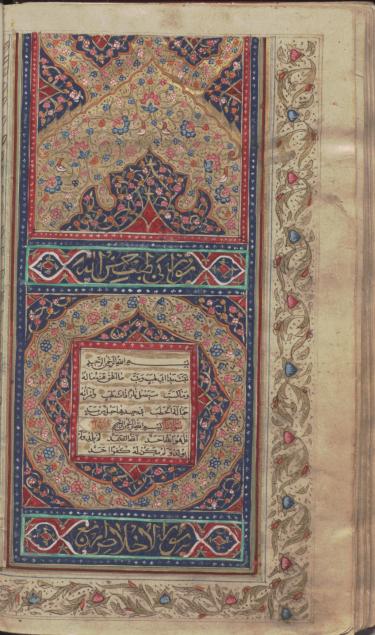 سورة ابی لهب خمس
بسم الله الرحمن الرحيم
تبت يدا ابي لهب وتب ما اغنى عنه ماله
وما كسب سيصلى نارا ذات لهب وامراته
حمالة الحطب في جيدها حبل من مسد
بسم الله الرحمن الرحيم
قل هو الله احد الله الصمد لم يلد ولم
يولد ولم يكن له كفوا احد
سورة الاخلاص